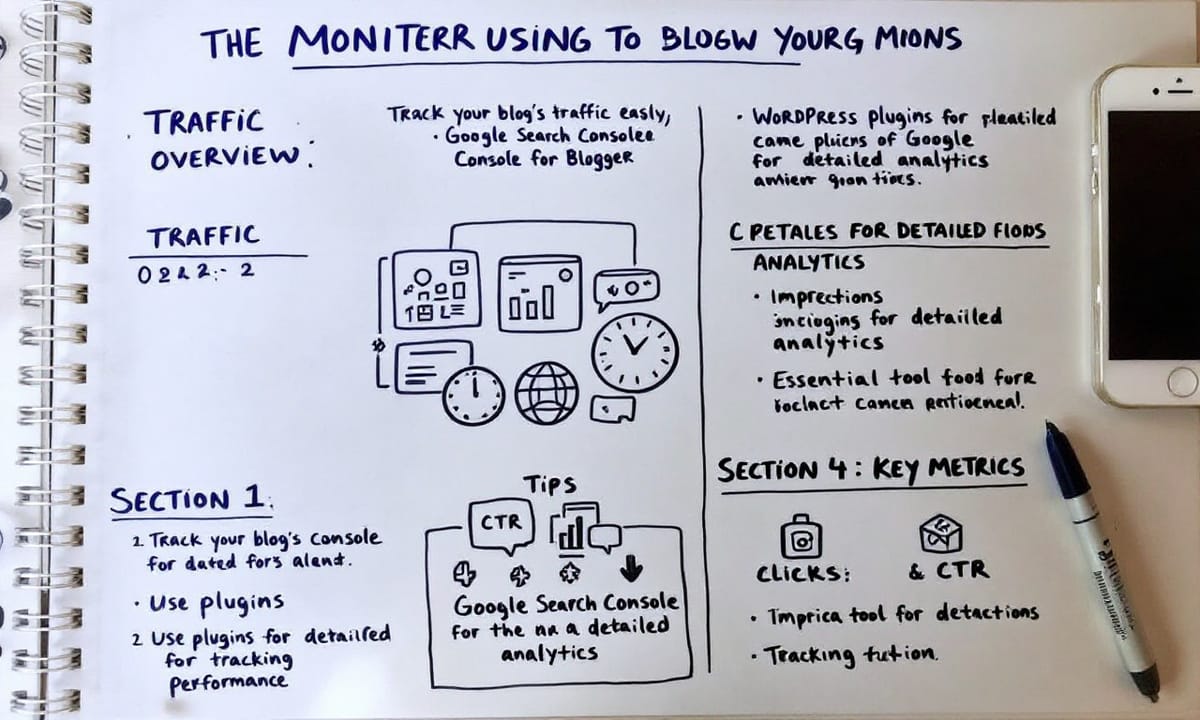 THE MONITERR USING TO BLOGW YOURG MIONS
TRAFFIC
OVERVIEW:
Track your blog's traffic easly,
· Google Search Consolee
Console for Blogger
TRAFFIC
Section 1.
2. Track your blog's console
for dated fors alend.
· Use plugins
2 Use plugins for detailred
for tracking
performance
Tips
CTR
Google Search Console
for the a detailed
analytics
· WordPress plugins for
came of Google
for detailed analytics
C PETALES FOR DETAILED FIODS
ANALYTICS
· Imprections
for detailled
analytics
· Essential tool food fore
Section 4: Key Metrics
Clicks:
& CTR
· Imprica tool for detactions
· Tracking fution.